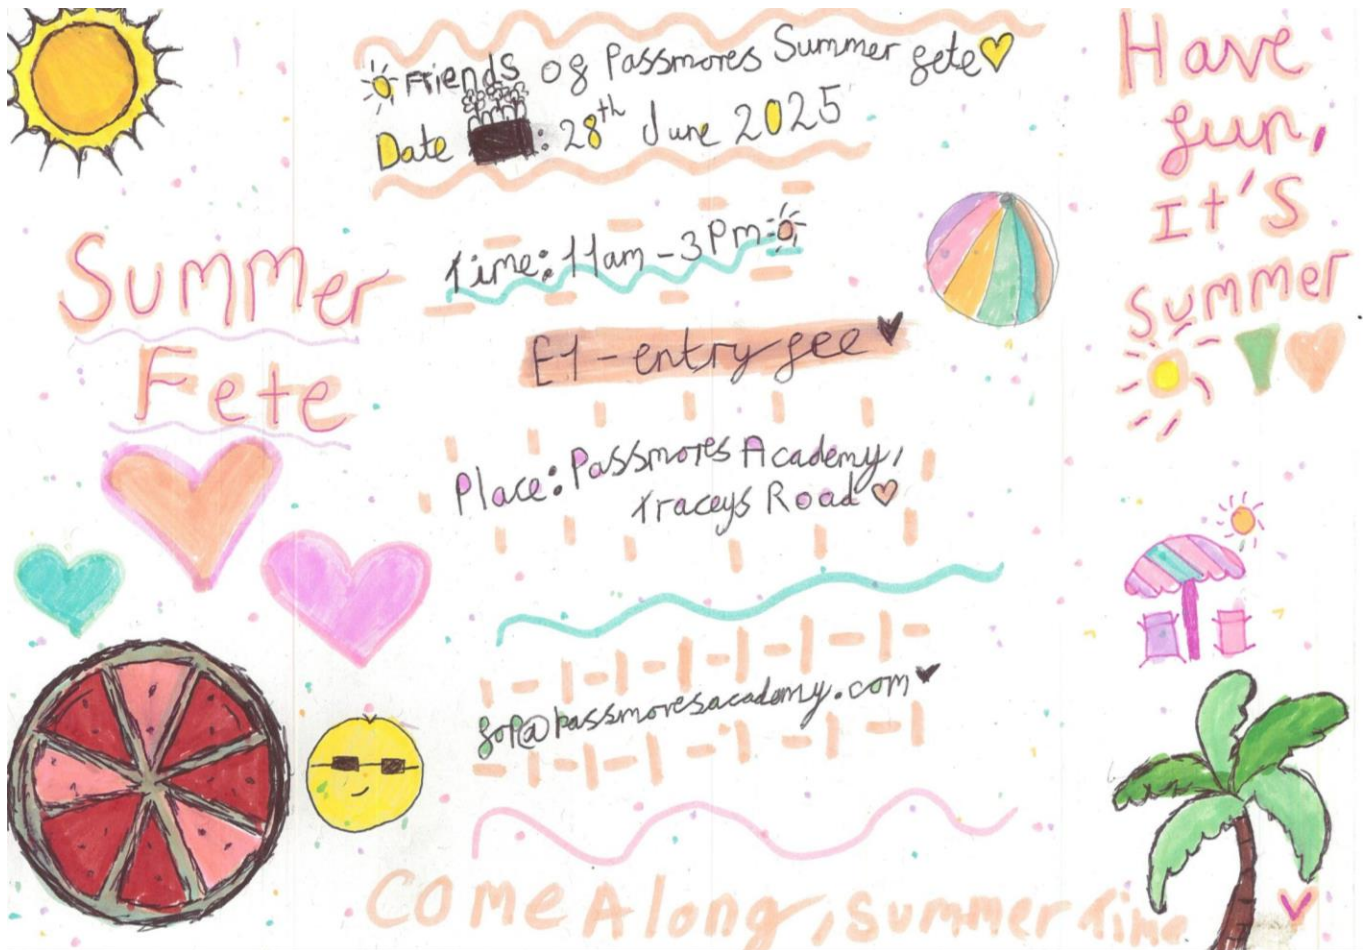 Friends of Passmores Summer fete
Date : 28th June 2025
Time: 11am - 3pm
£1 - entry fee
Place: Passmores Academy,
Traceys Road
fop@passmoresacademy.com
Summer
Fete
Have
fun,
It's
Summer
Come Along, summer Time